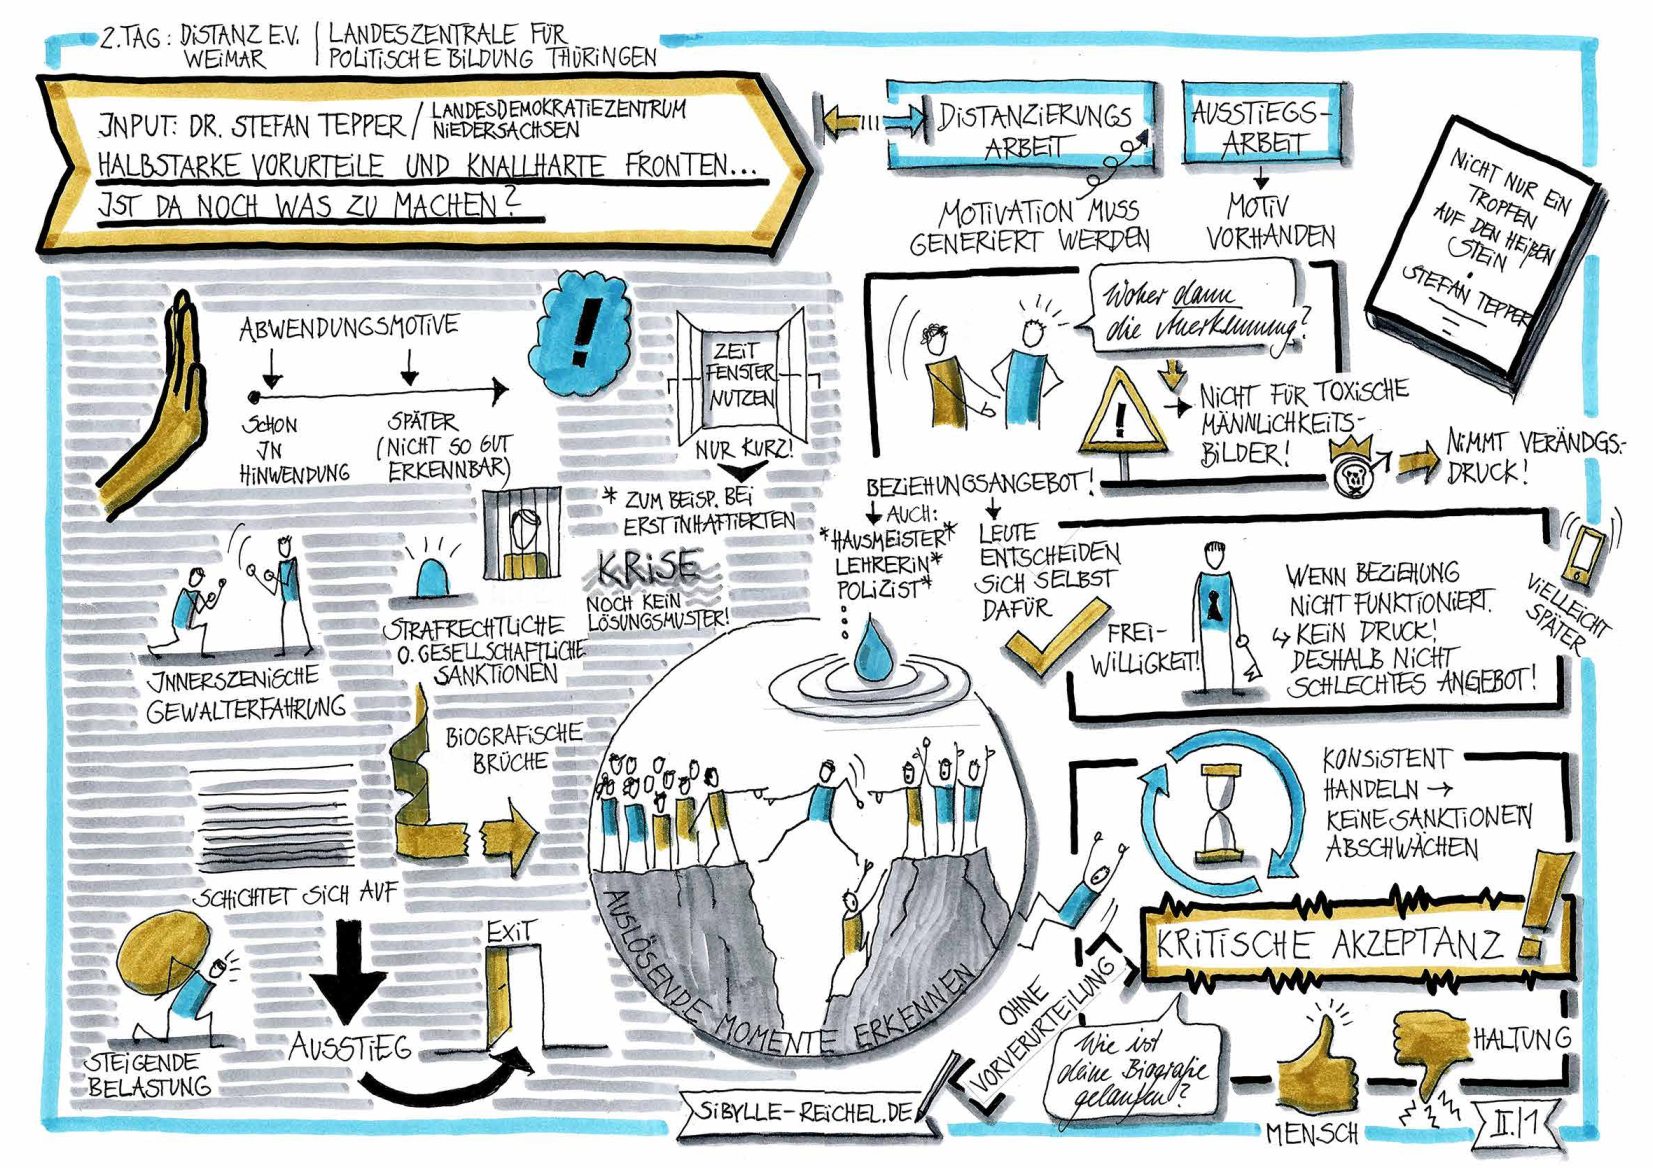 2.TAG: DiSTANZ E.V. | LANDESZENTRALE FÜR
WEiMAR | POLiTiSCHE BiLDUNG THÜRiNGEN
INPUT: DR. STEFAN TEPPER / LANDESDEMOKRATiEZENTRUM
NiEDERSACHSEN
HALBSTARKE VORURTEiLE UND KNALLHARTE FRONTEN...
IST DA NOCH WAS ZU MACHEN?
DiSTANZiERUNGS
ARBEiT
MOTiVATiON MUSS
GENERiERT WERDEN
AUSSTiEGS-
ARBEiT
MOTiV
VORHANDEN
NiCHT NUR EiN
TROPFEN
AUF DEN HEißEN
STEiN
STEFAN TEPPER
ABWENDUNGSMOTiVE
SCHON
IN
HiNWENDUNG
SPÄTER
(NiCHT SO GUT
ERKENNBAR)
!
ZEiT
FENSTER
NUTZEN
NUR KURZ!
* ZUM BEiSP. BEi
ERSTiNHAFTiERTEN
KRiSE
NOCH KEiN
LÖSUNGSMUSTER!
INNERSZENiSCHE
GEWALTERFAHRUNG
STRAFRECHTLiCHE
O. GESELLSCHAFTLiCHE
SANKTiONEN
BiOGRAFiSCHE
BRÜCHE
SCHiCHTET SiCH AUF
STEiGENDE
BELASTUNG
AUSSTiEG
EXiT
Woher dann
die Anerkennung?
!
NiCHT FÜR TOXiSCHE
MÄNNLiCHKEiTS-
BiLDER!
NiMMT VERÄNDGS.-
DRUCK!
BEZiEHUNGSANGEBOT!
AUCH:
*HAUSMEiSTER*
LEHRERiN*
POLiZiST*
LEUTE
ENTSCHEiDEN
SiCH SELBST
DAFÜR
FREi-
WiLLiGKEiT!
WENN BEZiEHUNG
NiCHT FUNKTiONiERT.
KEiN DRUCK!
DESHALB NiCHT
SCHLECHTES ANGEBOT!
ViELLEiCHT
SPÄTER
AUSLÖSENDE MOMENTE ERKENNEN
KONSiSTENT
HANDELN →
KEiNE SANKTiONEN
ABSCHWÄCHEN
KRiTiSCHE AKZEPTANZ !
OHNE
VORVERURTEiLUNG
Wie ist
deine Biografie
gelaufen?
MENSCH
HALTUNG
SiBYLLE-REiCHEL.DE
II./1